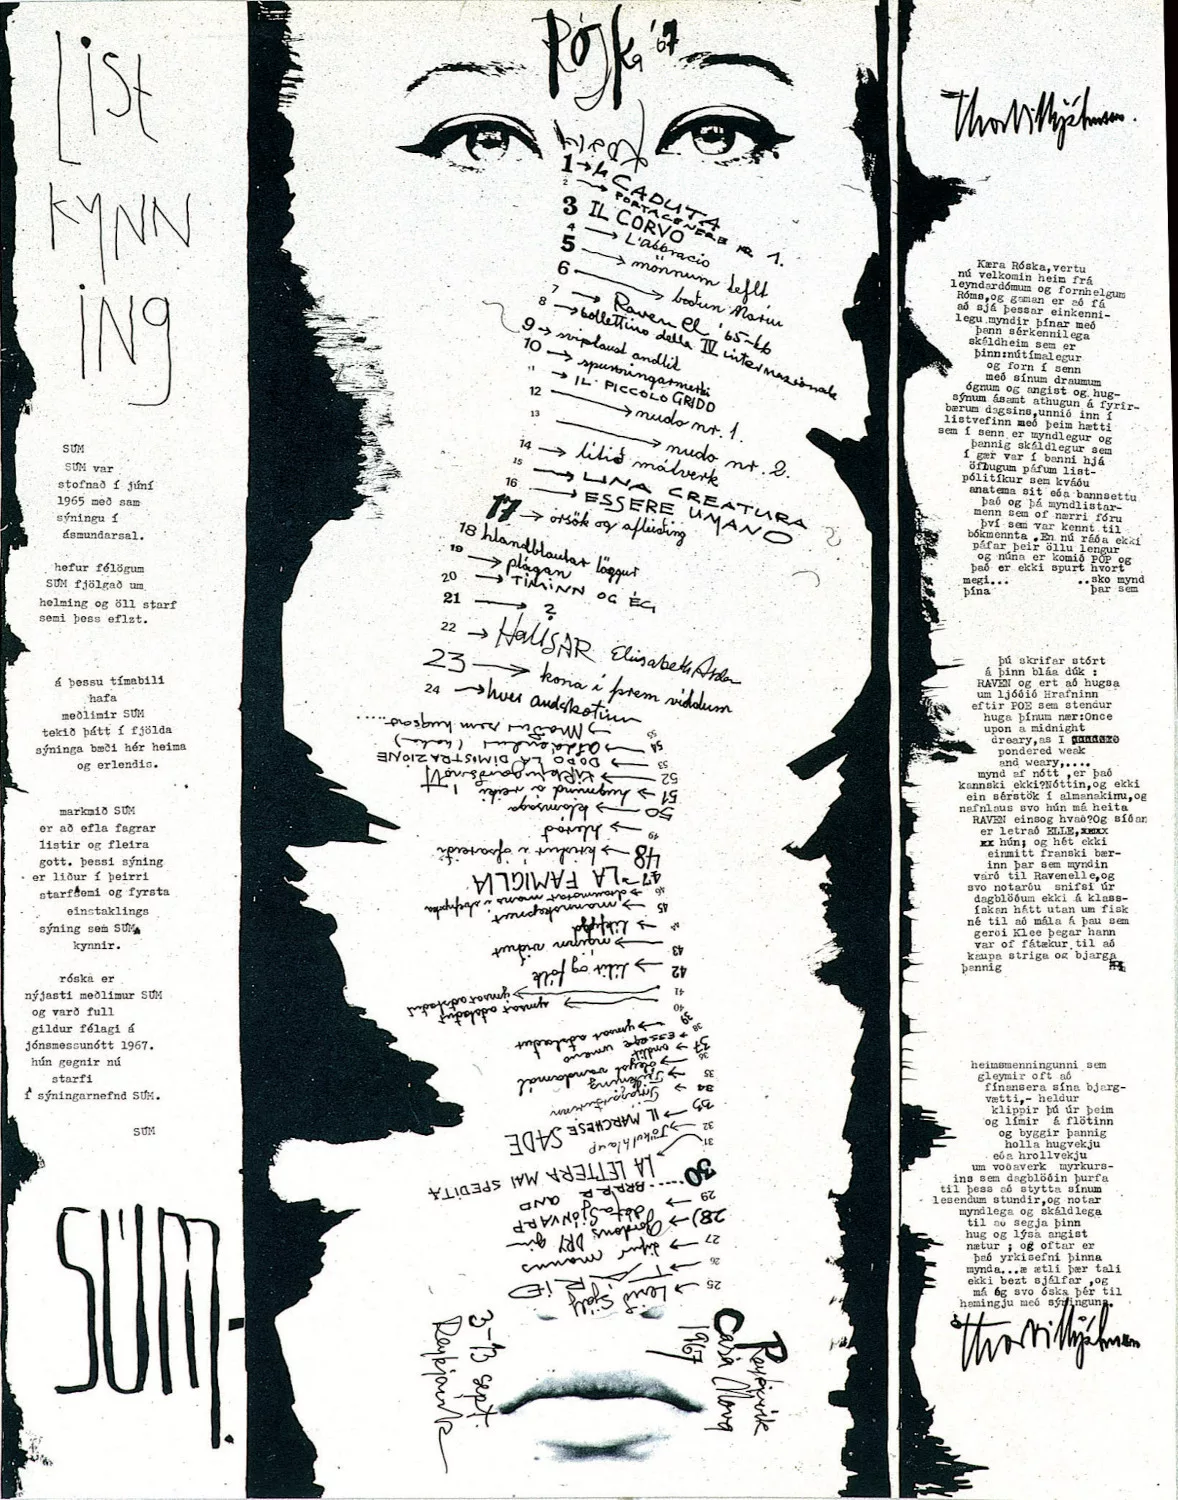 List
kynn
ing
SÚM
SÚM var
stofnað í júní
1965 með sam
sýningu í
ásmundarsal.
hefur félögum
SÚM fjölgað um
helming og öll starf
semi þess eflzt.
á þessu tímabili
hafa
meðlimir SÚM
tekið þátt í fjölda
sýninga bæði hér heima
og erlendis.
markmið SÚM
er að efla fagrar
listir og fleira
gott. þessi sýning
er liður í þeirri
starfsemi og fyrsta
einstaklings
sýning sem SÚM
kynnir.
róska er
nýjasti meðlimur SÚM
og varð full
gildur félagi á
jónsmessunótt 1967.
hún gegnir nú
starfi
í sýningarnefnd SÚM.
SÚM
SÚM.
Róska '67
1 → la CADUTA
2 → PORTACENERE NR 1.
3 IL CORVO
4 → L'abbraccio
5 → mönnum teflt
6 → boðun Maríu
7 → Raven el '65-66
8 → bollettino della IV internazionale
9 → sviplaust andlit
10 → spurningarmerki
11 → IL PICCOLO GRIDO
12 → nudo nr. 1.
13 → nudo nr. 2.
14 → lítið málverk
15 → UNA CREATURA
16 → ESSERE UMANO
17 → orsök og afleiðing
18 hlandblautar löggur
19 → plágan
20 → TÍMINN OG ÉG
21 → ?
22 → HallSAR Elisabeth Arden
23 → kona í þrem víddum
24 → hver andskotinn
55 → Maðurinn sem hugsað.....
54 →
53 DOPO LA DIMISTRAZIONE
52 →
51 → hugmynd á reiki
50 → klámsaga
49 →
48 → kristur í
47 → LA FAMIGLIA
46
45 →
44 →
43 →
42 → lítið og fólk
41 → ýmsar aðstæður
40 → ýmsar aðstæður
39 → ýmsar aðstæður
38 → essere umano
37 → andlit
36 → óleyst vandamál
35
34 →
33 → IL MARCHESE SADE
32 → Jökulhlaup
31 → LA LETTERA MAI SPEDITA
30 ..... BRRRR AND
29 → SJÓNVARP
(28) → Gordons DRY gin
27 → manns
26 →
25 →
3-13 sept.
Reykjavík
Reykjavík
Casa Nova
1967
Thor Vilhjálmsson.
Kæra Róska, vertu
nú velkomin heim frá
leyndardómum og fornhelgum
Róms,og gaman er að fá
að sjá þessar einkenni-
legu myndir þínar með
þann sérkennilega
skáldheim sem er
þinn:nútímalegur
og forn í senn
með sínum draumum
ógnum og angist og hug-
sýnum ásamt athugun á fyrir-
bærum dagsins,unnið inn í
listvefinn með þeim hætti
sem í senn er myndlegur og
þannig skáldlegur sem
í gær var í banni hjá
öflugum páfum list-
pólitíkur sem kváðu
anatema sit eða bannsettu
það og þá myndlistar-
menn sem of nærri fóru
því sem var kennt til
bókmennta .En nú ráða ekki
páfar þeir öllu lengur
og núna er komið POP og
það er ekki spurt hvort
megi... ..sko mynd
þína þar sem
þú skrifar stórt
á þinn bláa dúk :
RAVEN og ert að hugsa
um ljóðið Hrafninn
eftir POE sem stendur
huga þínum nær:Once
upon a midnight
dreary,as I
pondered weak
and weary,....
mynd af nótt ,er það
kannski ekki?Nóttin,og ekki
ein sérstök í almanakinu,og
nafnlaus svo hún má heita
RAVEN einsog hvað?Og síðan
er letrað ELLE,xxxx
xx hún; og hét ekki
einmitt franski bær-
inn þar sem myndin
varð til Ravenelle,og
svo notarðu snifsi úr
dagblöðum ekki á klass-
ískan hátt utan um fisk
né til að mála á þau sem
gerði Klee þegar hann
var of fátækur til að
kaupa striga og bjarga
þannig
heimsmenningunni sem
gleymir oft að
finansera sína bjarg-
vætti,- heldur
klippir þú úr þeim
og límir á flötinn
og byggir þannig
holla hugvekju
eða hrollvekju
um voðaverk myrkurs-
ins sem dagblöðin þurfa
til þess að stytta sínum
lesendum stundir,og notar
myndlega og skáldlega
til að segja þinn
hug og lýsa angist
nætur ; og oftar er
það yrkisefni þinna
mynda...æ ætli þær tali
ekki bezt sjálfar ,og
má ég svo óska þér til
hamingju með sýninguna.
Thor Vilhjálmsson